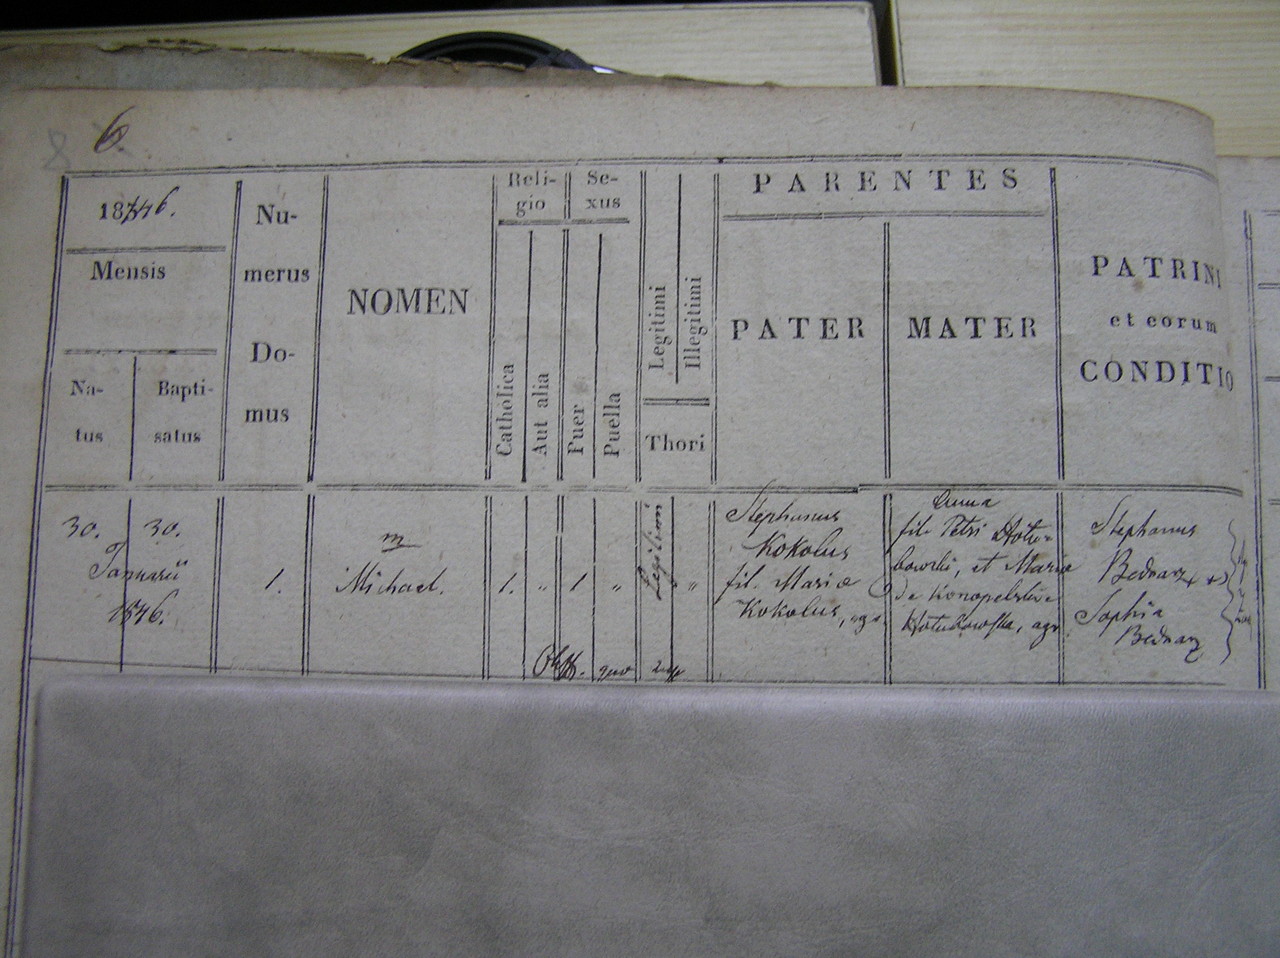 6.
1846.
Mensis
Na-
tus
Bapti-
satus
Nu-
merus
Do-
mus
NOMEN
Reli-
gio
Catholica
Aut alia
Se-
xus
Puer
Puella
Legitimi
Illegitimi
Thori
PARENTES
PATER
MATER
PATRINI
et eorum
CONDITIO
30. 30.
Januarii
1846.
1.
m
Michael.
1. " 1 " Legitimi "
Stephanus
Kokolus
fil. Mariæ
Kokolus,
Anna
fil. Petri Hotu=
bowski, et Maria
de
agr
Stephanus
Bednarz
Sophia
Bednarz